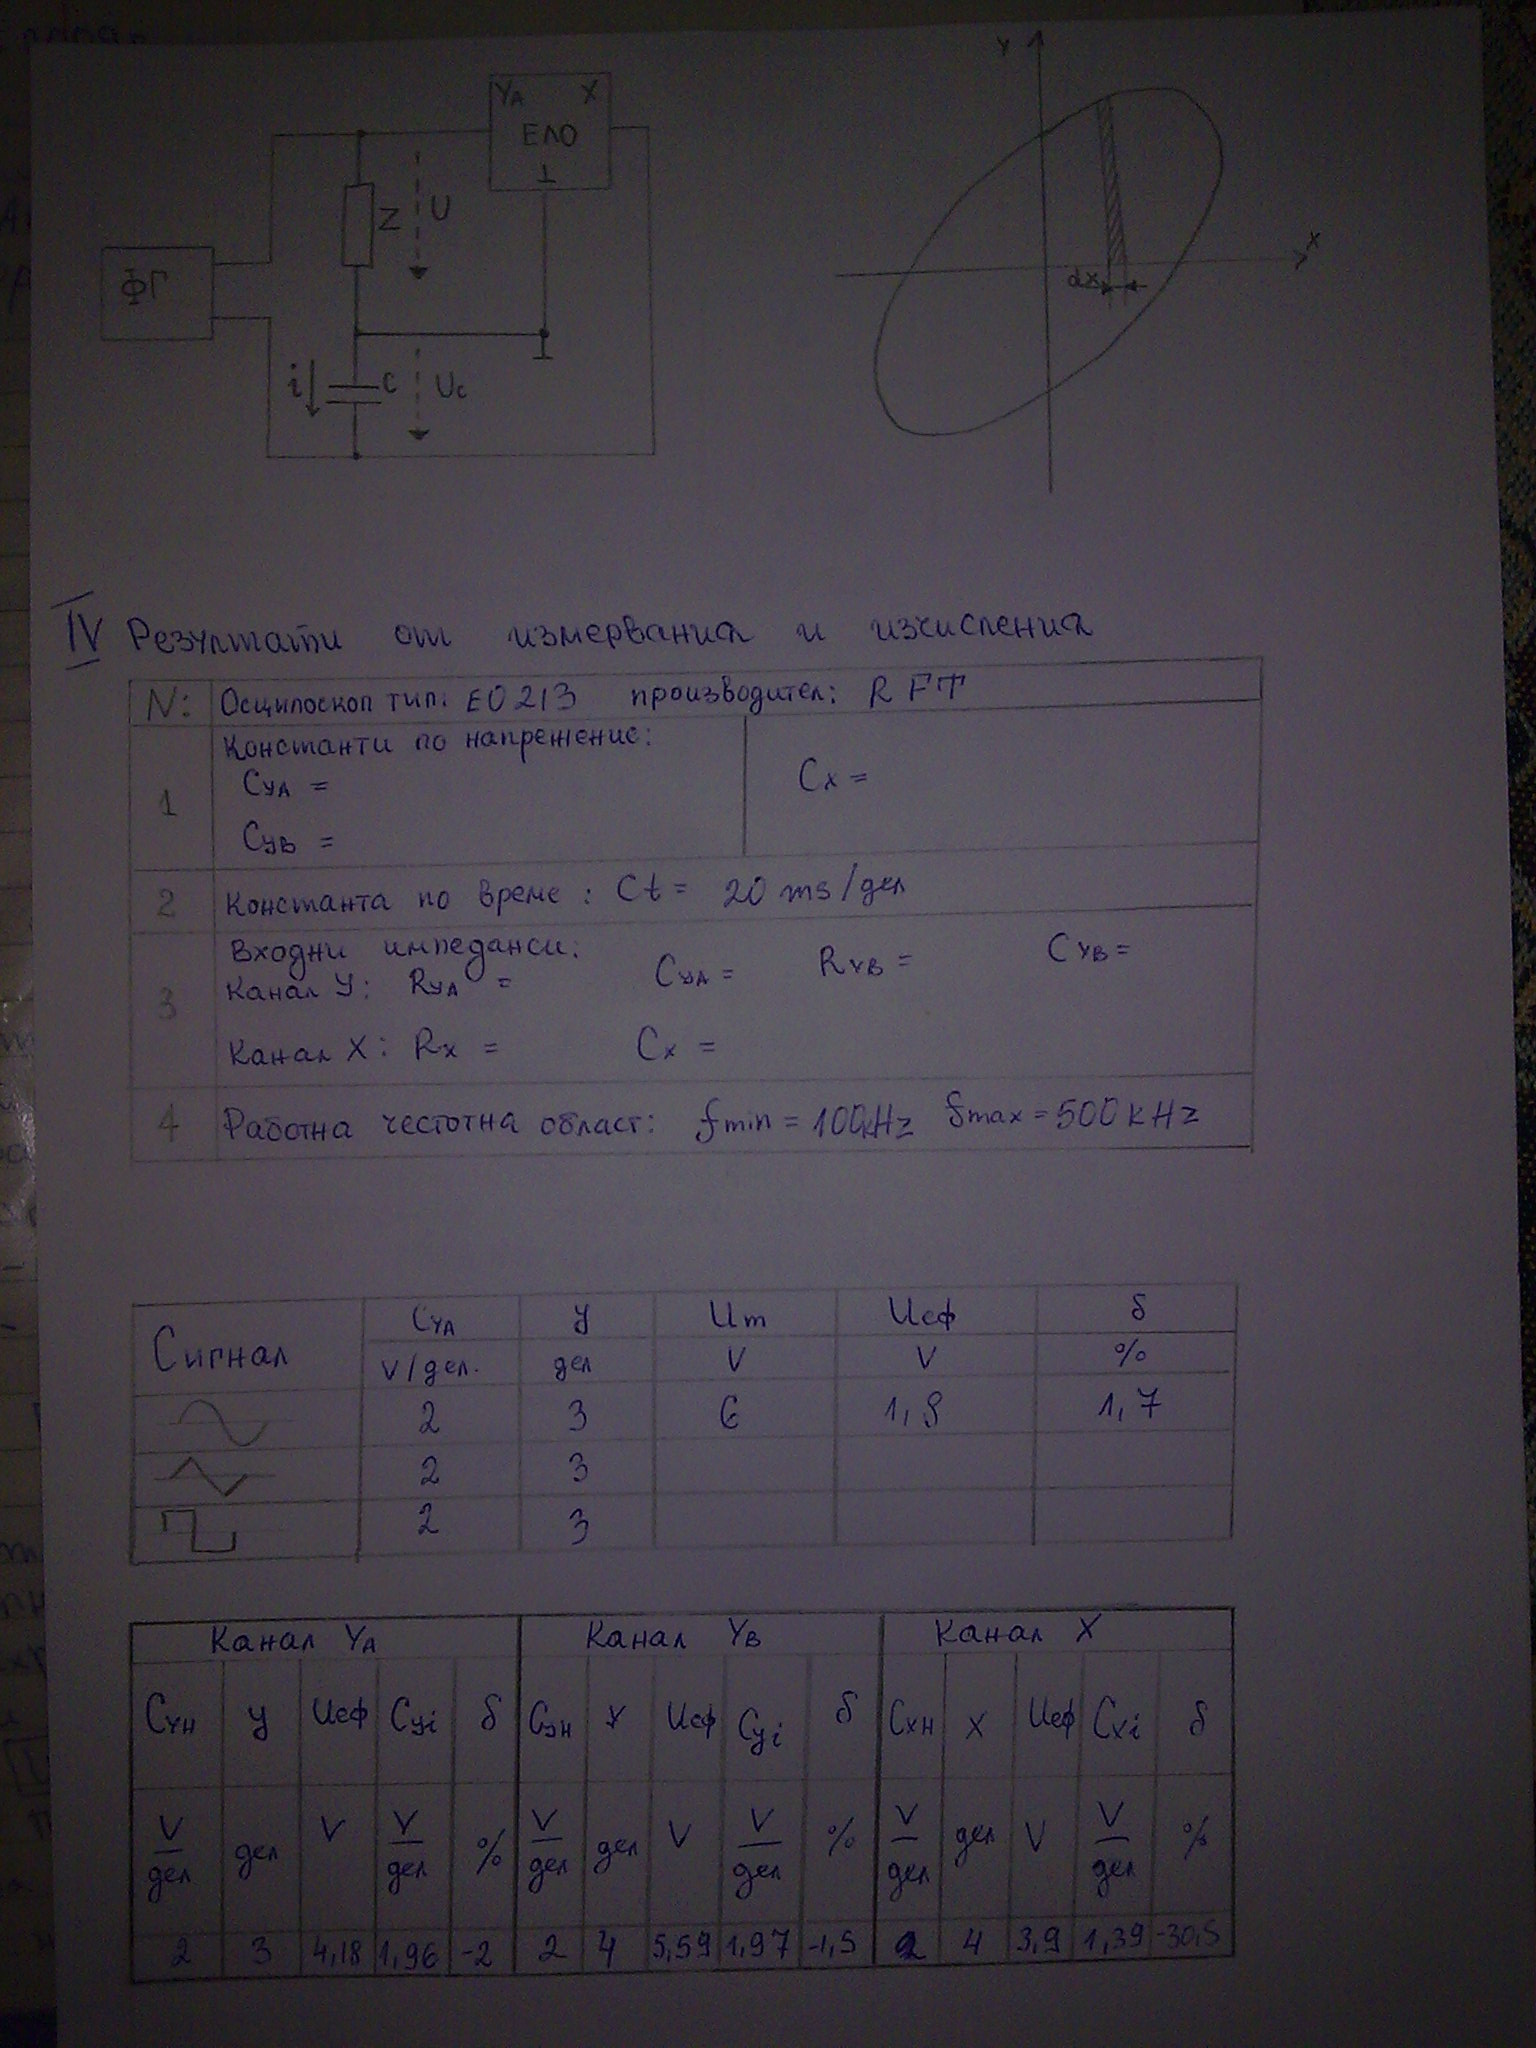 YA X
ЕЛО
⊥
Z U
ФГ
⊥
i C Uc
Y
X
dx
IV Резултати от измервания и изчисления
N: Осцилоскоп тип: EO 213 производител: RFT
1 Константи по напрежение:
CYA = CX =
CYB =
2 Константа по време : Ct = 20 ms/дел
3 Входни импеданси:
Канал Y: RYA = CYA = RYB = CYB =
Канал X: RX = CX =
4 Работна честотна област: fmin = 100kHz fmax = 500kHz
Сигнал CYA y Um Uеф δ
V/дел. дел V V %
2 3 6 1,9 1,7
2 3
2 3
Канал YA Канал YB Канал X
CYH y Uеф Cyi δ CyH x Uеф Cyi δ CXH X Uеф CXi δ
V/дел дел V V/дел % V/дел дел V V/дел % V/дел дел V V/дел %
2 3 4,18 1,96 -2 2 4 5,59 1,97 -1,5 2 4 3,9 1,39 -30,5